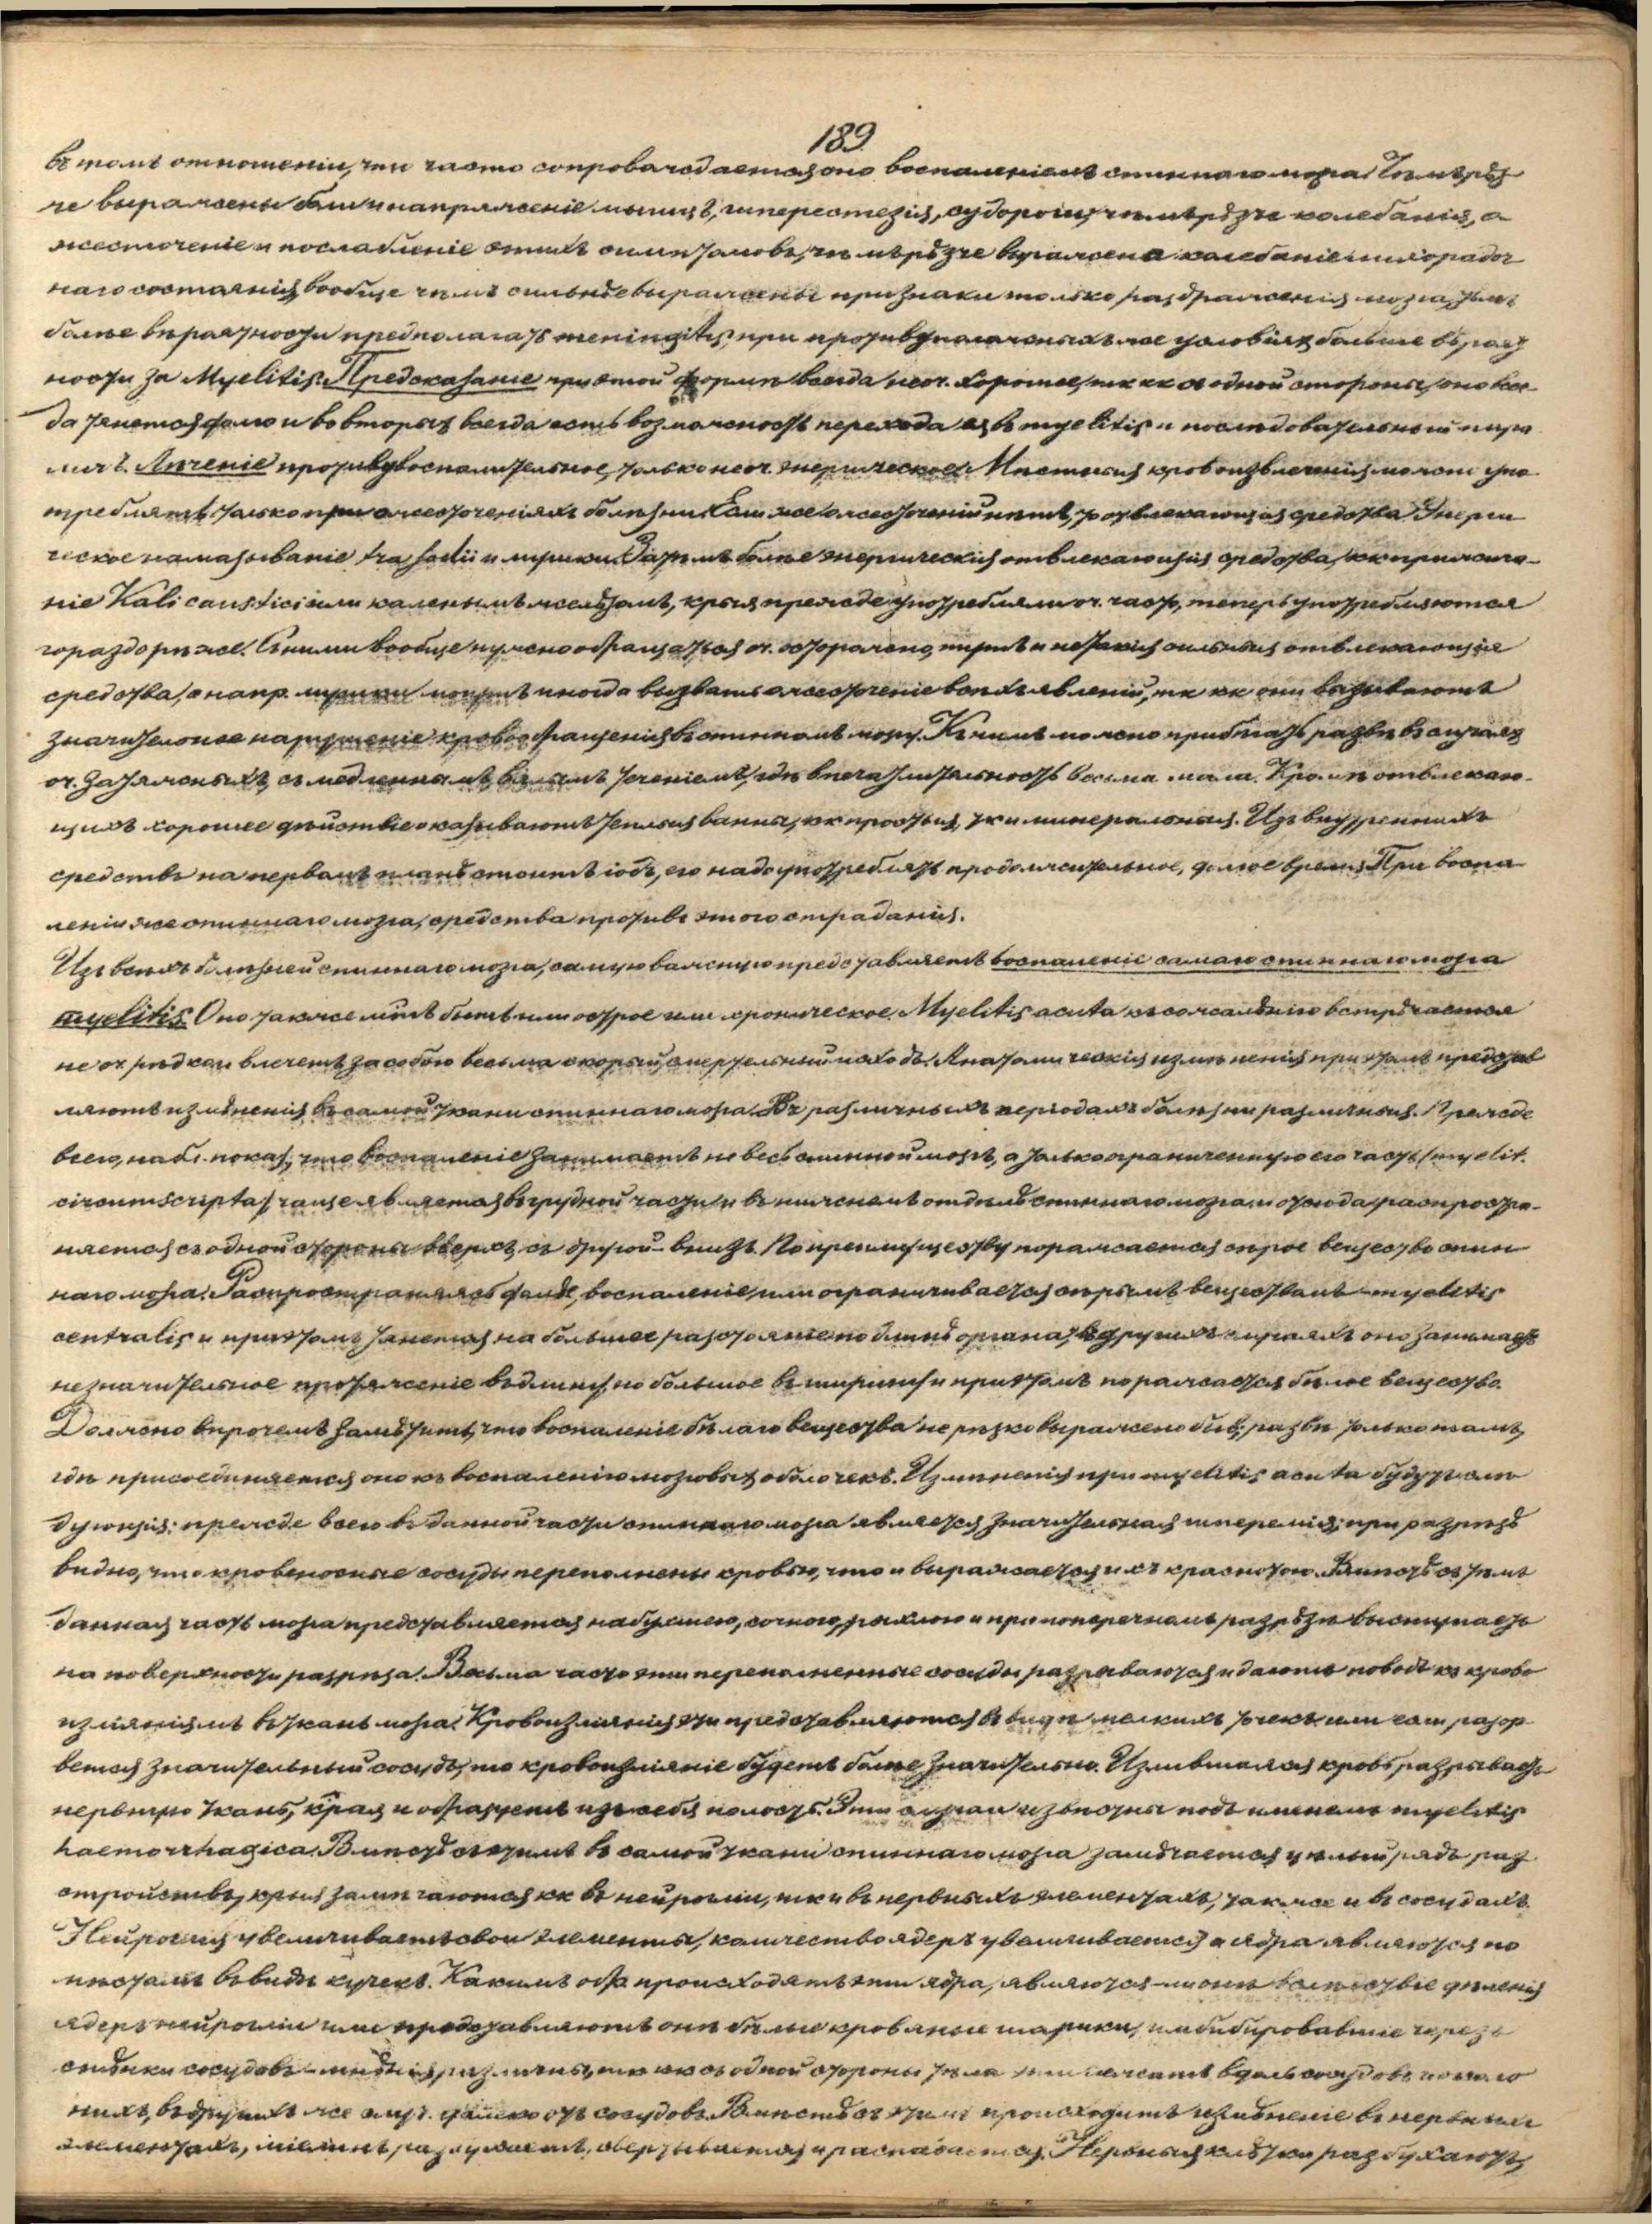 189
въ томъ отношеніи, что часто сопровождается оно воспаленіемъ спиннаго мозга. Чѣмъ рѣз
че выражены боли и напряженіе мышцъ, гиперестезія, судороги, чѣмъ рѣзче колебанія, о
жесточеніе и послабленіе этихъ симптомовъ, чѣмъ рѣзче выражена колебаніе лихорадоч
наго состоянія, вообще чѣмъ сильнѣе выражены признаки только раздраженія мозга, тѣмъ
болѣе вѣроятности предполагать meningitis, при противуположныхъ же условіяхъ больше вѣроят
ности за Myelitis. Предсказаніе при этой формѣ всегда неоч. хорошее, тк кк съ одной стороны, оно всег
да тянется долго и во вторыхъ всегда есть возможность перехода ея въ myelitis и послѣдовательный пара
личъ. Лѣченіе противувоспалительное, только неоч. энергическое. Мѣстныя кровоизвлеченія можно упо
треблять только при ожесточеніяхъ болѣзни. Если же ожесточеній нѣтъ, то отвлекающія средства. Энерги
ческое намазываніе tra Jodii и мушки. Затѣмъ болѣе энергическія отвлекающія средства, кк прижига-
ніе Kali caustici или каленымъ желѣзомъ, крыя прежде употребляли оч. часто, теперь употребляются
гораздо рѣже. Съ ними вообще нужно обращаться оч. осторожно, и не такія сильныя отвлекающія
средства, а напр. мушки могутъ иногда вызвать ожесточеніе всѣхъ явленій, тк кк они вызываютъ
значительное нарушеніе кровообращенія въ спинномъ мозгу. Къ нимъ можно прибѣгать развѣ въ случаяхъ
оч. затяжныхъ, съ медленнымъ, вялымъ теченіемъ, гдѣ впечатлительность весьма мала. Кромѣ отвлекаю-
щихъ хорошее дѣйствіе оказываютъ теплыя ванны, кк простыя, тк и минеральныя. Изъ внутреннихъ
средствъ на первомъ планѣ стоитъ іодъ, его надо употреблять продолжительное, долгое время. При воспа
леніи же спиннаго мозга, средства противъ этого страданія.
Изъ всѣхъ болѣзней спиннаго мозга, самую важную представляетъ воспаленіе самаго спиннаго мозга
myelitis. Оно также мжтъ быть или острое или хроническое. Myelitis acuta къ сожалѣнію встрѣчается
не оч. рѣдко и влечетъ за собою весьма скорый, смертельный исходъ. Анатомическія измѣненія при этомъ представ
ляютъ измѣненія въ самой ткани спиннаго мозга. Въ различныхъ періодахъ болѣзни различныя. Прежде
всего, набл. показ., что воспаленіе занимаетъ не весь спинной мозгъ, а только ограниченную его часть (myelit.
circumscripta) чаще является въ грудной части и въ нижнемъ отдѣлѣ спиннаго мозга, и отсюда распростра-
няется съ одной стороны вверхъ, съ другой - внизъ. По преимуществу поражается сѣрое вещество спин
наго мозга. Распространяясь далѣе, воспаленіе, или ограничивается сѣрымъ веществомъ - myelitis
centralis и при этомъ тянется на большее разстояніе по длинѣ органа, въ другихъ случаяхъ оно занимаетъ
незначительное протяженіе въ длину, но большое въ ширину и при этомъ поражается бѣлое вещество.
Должно впрочемъ замѣтить, что воспаленіе бѣлаго вещества не рѣзко выражено быв., развѣ только тамъ,
гдѣ присоединяется оно къ воспаленію мозговыхъ оболочекъ. Измѣненія при myelitis acuta будутъ слѣ
дующія: прежде всего въ данной части спиннаго мозга является значительная гиперемія; при разрѣзѣ
видно, что кровеносные сосуды переполнены кровью, что и выражается ихъ краснотою. Вмѣстѣ съ тѣмъ
данная часть мозга представляется набухшею, сочною, рыхлою и при поперечномъ разрѣзѣ выступаетъ
на поверхности разрѣза. Весьма часто эти переполненные сосуды разрываются и даютъ поводъ къ крово
изліяніямъ въ ткань мозга. Кровоизліянія эти представляются въ видѣ мелкихъ точекъ или если разор-
вется значительный сосудъ, то кровоизліяніе будетъ болѣе значительно. Излившаяся кровь разрываетъ
нервную ткань, края и образуетъ изъ себя полость. Эти случаи извѣстны подъ именемъ myelitis
haemorrhagica. Вмѣстѣ съ этимъ въ самой ткани спиннаго мозга замѣчается цѣлый рядъ раз
стройствъ, крыя замѣчаются кк въ нейрогліи, тк и въ нервныхъ элементахъ, также и въ сосудахъ.
Нейроглія увеличиваетъ свои элементы, количество ядеръ увеличивается, а ядра являются по
мѣстамъ въ видѣ кучекъ. Какимъ обр. происходятъ эти ядра, являются-ли они вслѣдствіе дѣленія
ядеръ нейрогліи или представляютъ онѣ бѣлые кровяные шарики, имбибировавшіе черезъ
стѣнки сосудовъ - мнѣнія различны, тк кк съ одной стороны тѣла эти лежатъ вдоль сосудовъ, около
нихъ, въ другихъ же случ. далеко отъ сосудовъ. Вмѣстѣ съ этимъ происходитъ измѣненіе въ нервныхъ
элементахъ, міелинъ разбухаетъ, свертывается и распадается. Нервныя клѣтки разбухаютъ,